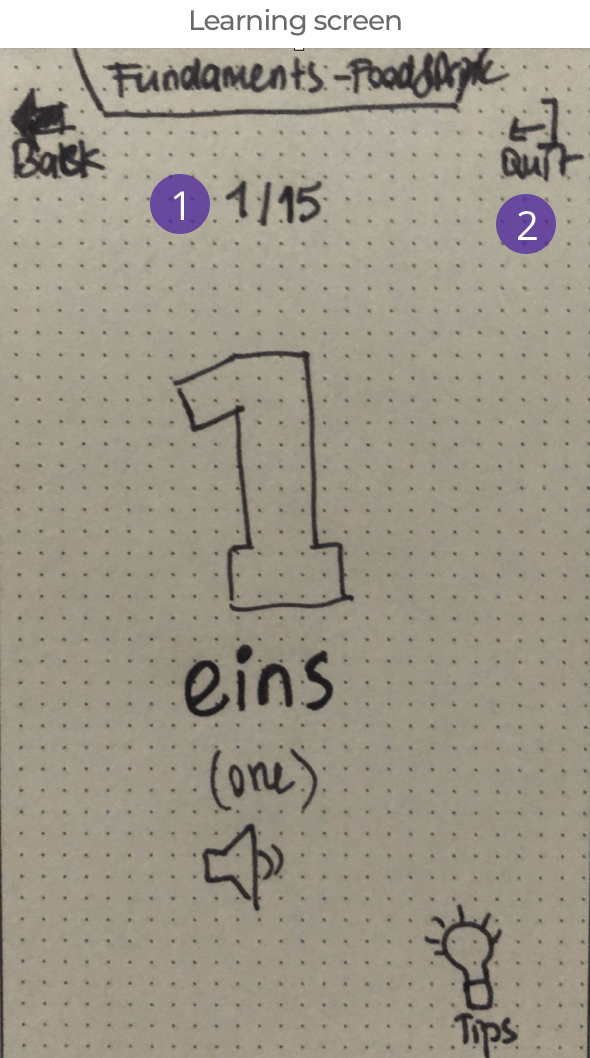 Learning screen
Fundaments - Food & Drink
Back
Quit
1 1/15
2
1
eins
(one)
Tips